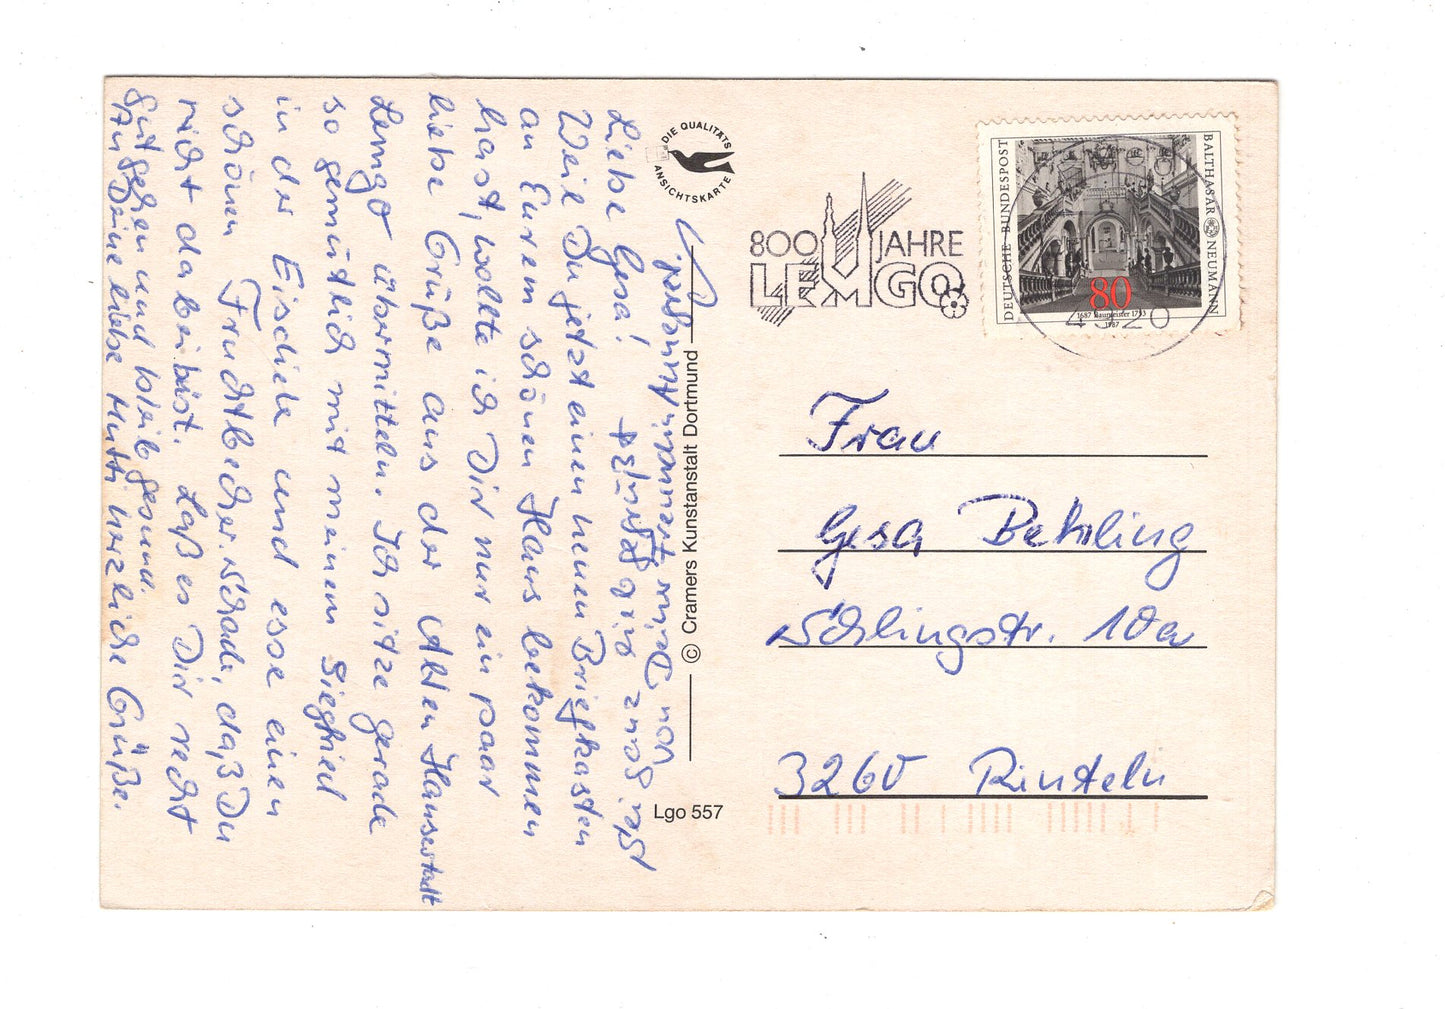 Liebe Gesa!
Weil Du jetzt einen neuen Briefkasten
an Eurem schönen Haus bekommen
hast, wollte ich Dir nur ein paar
liebe Grüße aus der Alten Hansestadt
Lemgo übermitteln. Ich sitze gerade
so gemütlich mit meinem Siegfried
in der Eisdiele und esse einen
schönen Fruchtbecher. Schade, daß Du
nicht dabei bist. Laß es Dir recht
gut gehen und bleib gesund.
Grüße.
an Deine liebe Mutti herzliche
von Deiner Freundin Annemarie
grüßt
DIE QUALITÄTS
ANSICHTSKARTE
© Cramers Kunstanstalt Dortmund
Lgo 557
800 JAHRE
LEMGO
4920
DEUTSCHE BUNDESPOST
BALTHASAR NEUMANN
80
1687 Baumeister 1753
1987
Frau
Gesa
Schlingstr. 10a
3260 Rinteln